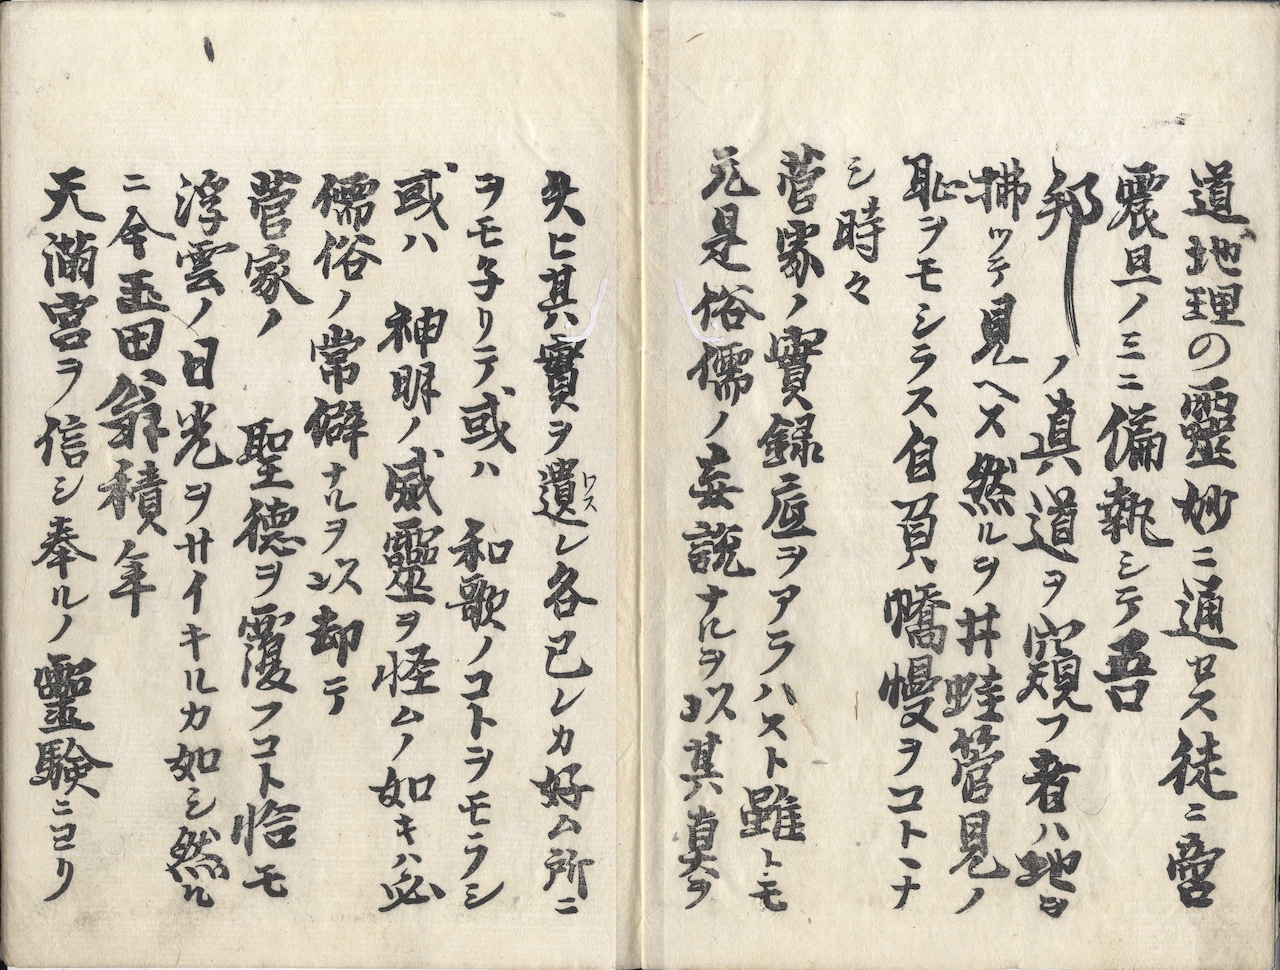 道地理の靈妙ニ通ロス徒ニ啻
震旦ノミニ偏執シテ吾
邦ノ真道ヲ窺フ者ハ地ヲ
拂ッテ見ヘス然ルヲ井蛙管見ノ
恥ヲモシラス自負、憍慢ヲコトヽナ
シ時々
菅家ノ實録㡳ヲアラハスト雖トモ
元是俗儒ノ妄説ナルヲ以其真ヲ
失ヒ其實ヲ遺レ各已レカ好ム所ニ
ワス
ヲモ子リテ或ハ和歌ノコトヲモラシ
或ハ神明ノ威靈ヲ怪ムノ如キハ必
儒俗ノ常僻ナルヲ以却テ
菅家ノ聖徳ヲ覆フコト恰モ
浮雲ノ日光ヲサイキルカ如シ然ル
ニ今玉田翁積年
天満宮ヲ信シ奉ルノ靈験ニヨリ